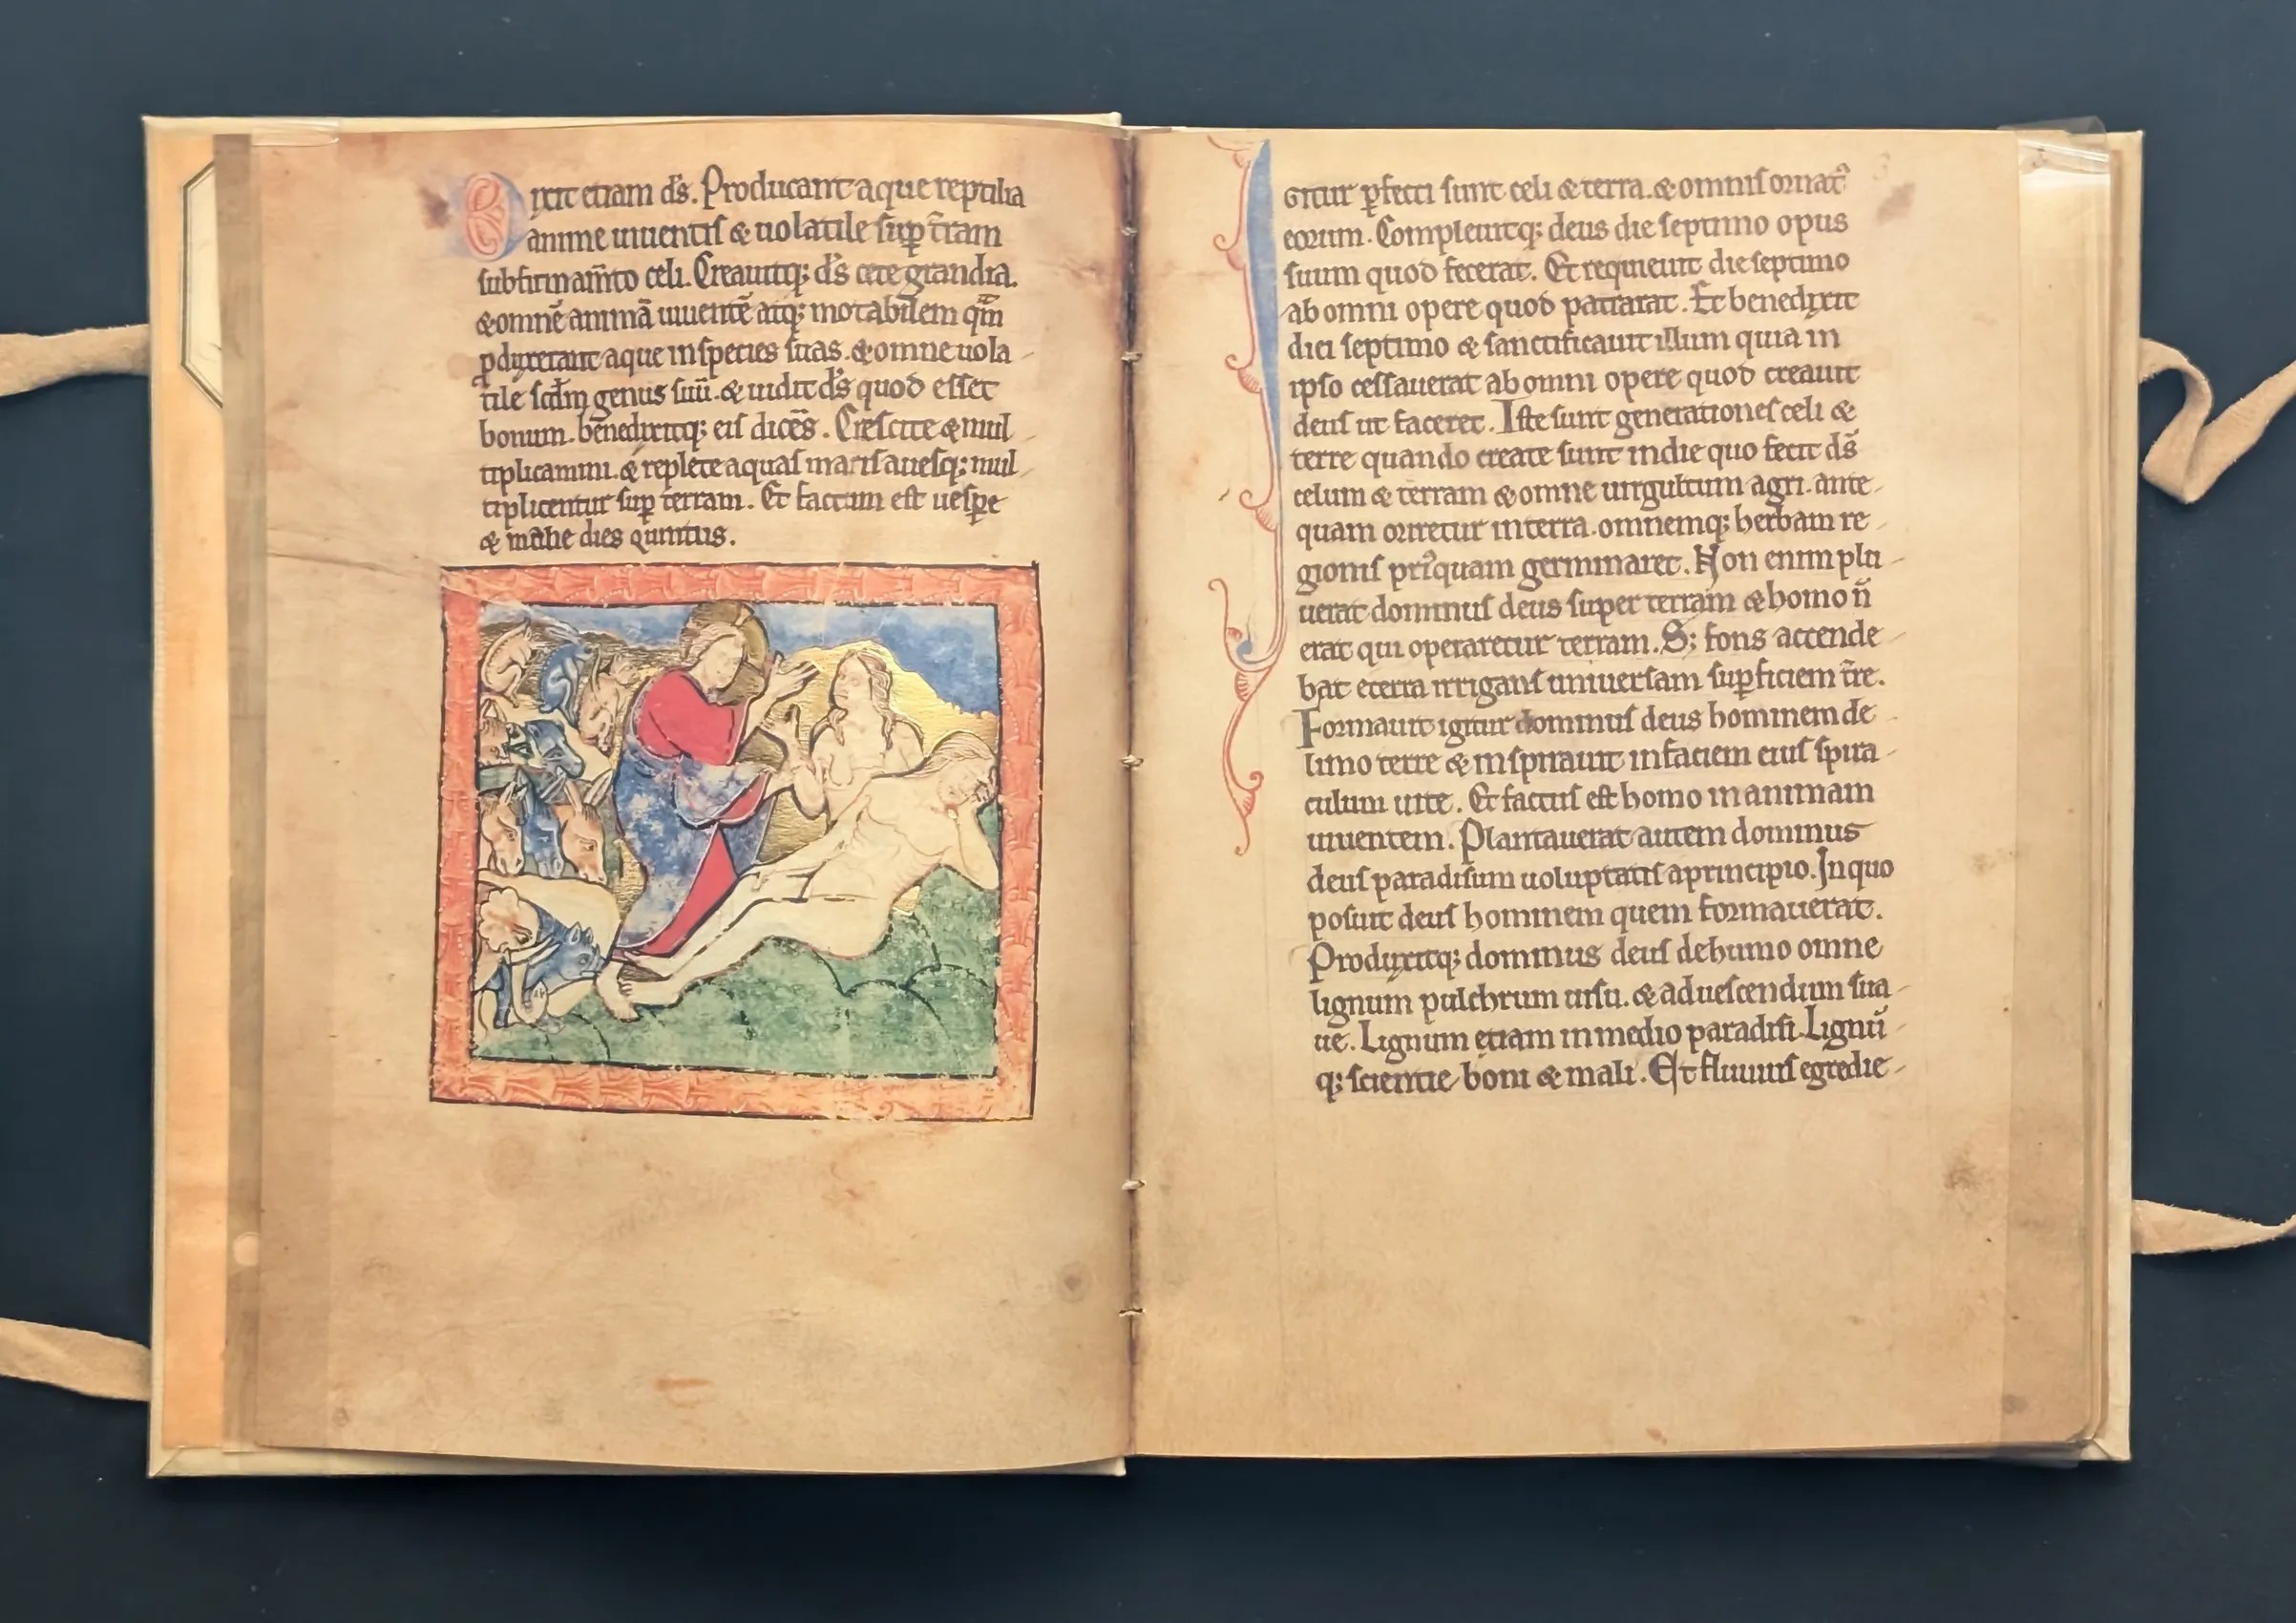 Dixit etiam d̄s. Producant aque reptilia
anime uiuentis & uolatile suꝑ t̄ram
subfirmam̄to celi. Creauitq; d̄s cete grandia.
& omnē animā uiuentē atq; motabilem q̄m
ꝓduxerant aque in species suas. & omne uola
tile scd̄m genus suū. & uidit d̄s quod esset
bonum. benedixitq; eis dicēs. Crescite & mul
tiplicamini. & replete aquas maris auesq; mul
tiplicentur suꝑ terram. Et factum est uesꝑe
& mane dies quintus.
Igitur ꝑfecti sunt celi & terra. & omnis ornatꝰ
eorum. Compleuitq; deus die septimo opus
suum quod fecerat. Et requieuit die septimo
ab omni opere quod patrarat. Et benedixit
diei septimo & sanctificauit illum quia in
ipso cessauerat ab omni opere quod creauit
deus ut faceret. Iste sunt generationes celi &
terre quando create sunt in die quo fecit d̄s
celum & terram & omne uirgultum agri. ante
quam oriretur in terra. omnemq; herbam re
gionis priꝰquam germinaret. Non enim plu
uerat dominus deus super terram & homo n̄
erat qui operaretur terram. S; fons accende
bat e terra irrigans uniuersam suꝑficiem t̄re.
Formauit igitur dominus deus hominem de
limo terre & inspirauit in faciem eius spira
culum uite. Et factus est homo in animam
uiuentem. Plantauerat autem dominus
deus paradisum uoluptatis a principio. In quo
posuit deus hominem quem formauerat.
Produxitq; dominus deus de humo omne
lignum pulchrum uisu. & ad uescendum sua
ue. Lignum etiam in medio paradisi. Lignū
q; scientie boni & mali. Et fluuius egredie